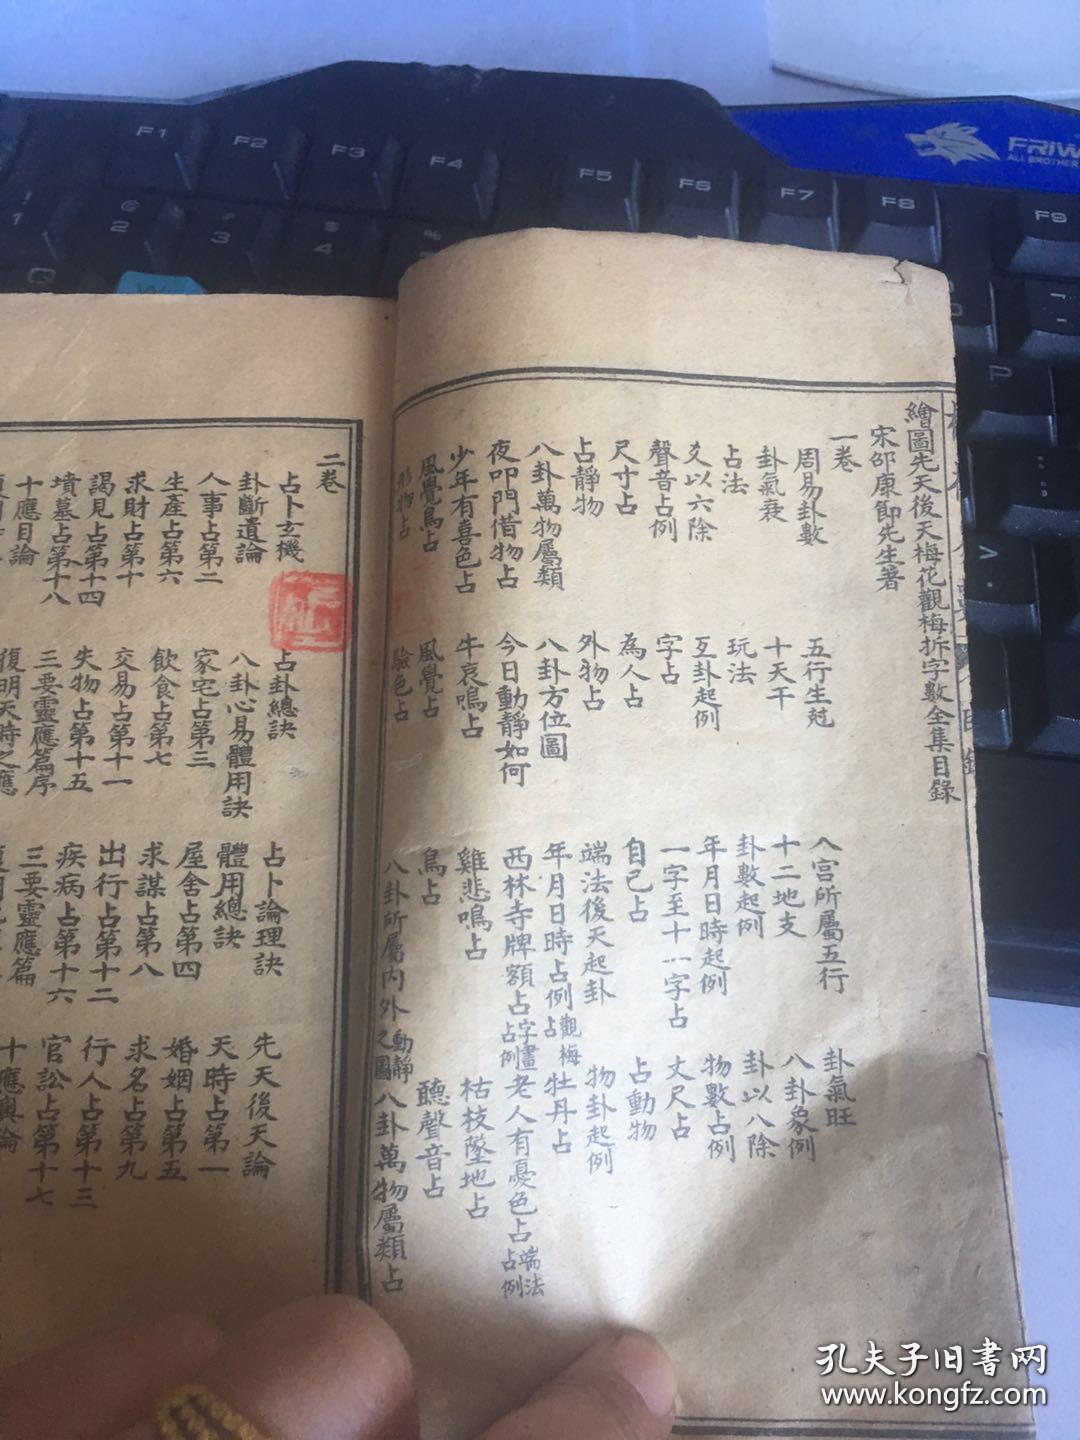 繪圖先天後天梅花觀梅拆字數全集目錄
宋邵康節先生著
一卷
周易卦數 五行生尅 八宮所屬五行 卦氣旺
卦氣衰 十天干 十二地支 八卦象例
占法 玩法 卦數起例 卦以八除
爻以六除 互卦起例 年月日時起例 物數占例
聲音占例 字占 一字至十一字占 丈尺占
尺寸占 為人占 自己占 占動物
占靜物 外物占 端法後天起卦 物卦起例
八卦萬物屬類 八卦方位圖 年月日時占例 觀梅占 牡丹占
夜叩門借物占 今日動靜如何 西林寺牌額占 字畫占例 老人有憂色占 端法占例
少年有喜色占 牛哀鳴占 雞悲鳴占 枯枝墜地占
風覺鳥占 風覺占 鳥占 聽聲音占
形物占 驗色占 八卦所屬內外動靜之圖 八卦萬物屬類占
二卷
占卜玄機 占卦總訣 占卜論理訣 先天後天論
卦斷遺論 八卦心易體用訣 體用總訣 天時占第一
人事占第二 家宅占第三 屋舍占第四 婚姻占第五
生產占第六 飲食占第七 求謀占第八 求名占第九
求財占第十 交易占第十一 出行占第十二 行人占第十三
謁見占第十四 失物占第十五 疾病占第十六 官訟占第十七
墳墓占第十八 三要靈應篇序 三要靈應篇 十應奧論
十應目論 復明天時之應
F1 F2 F3 F4 F5 F6 F7 F8 F9
FRIW
ALL BROTHER
孔夫子旧書网
www.kongfz.com